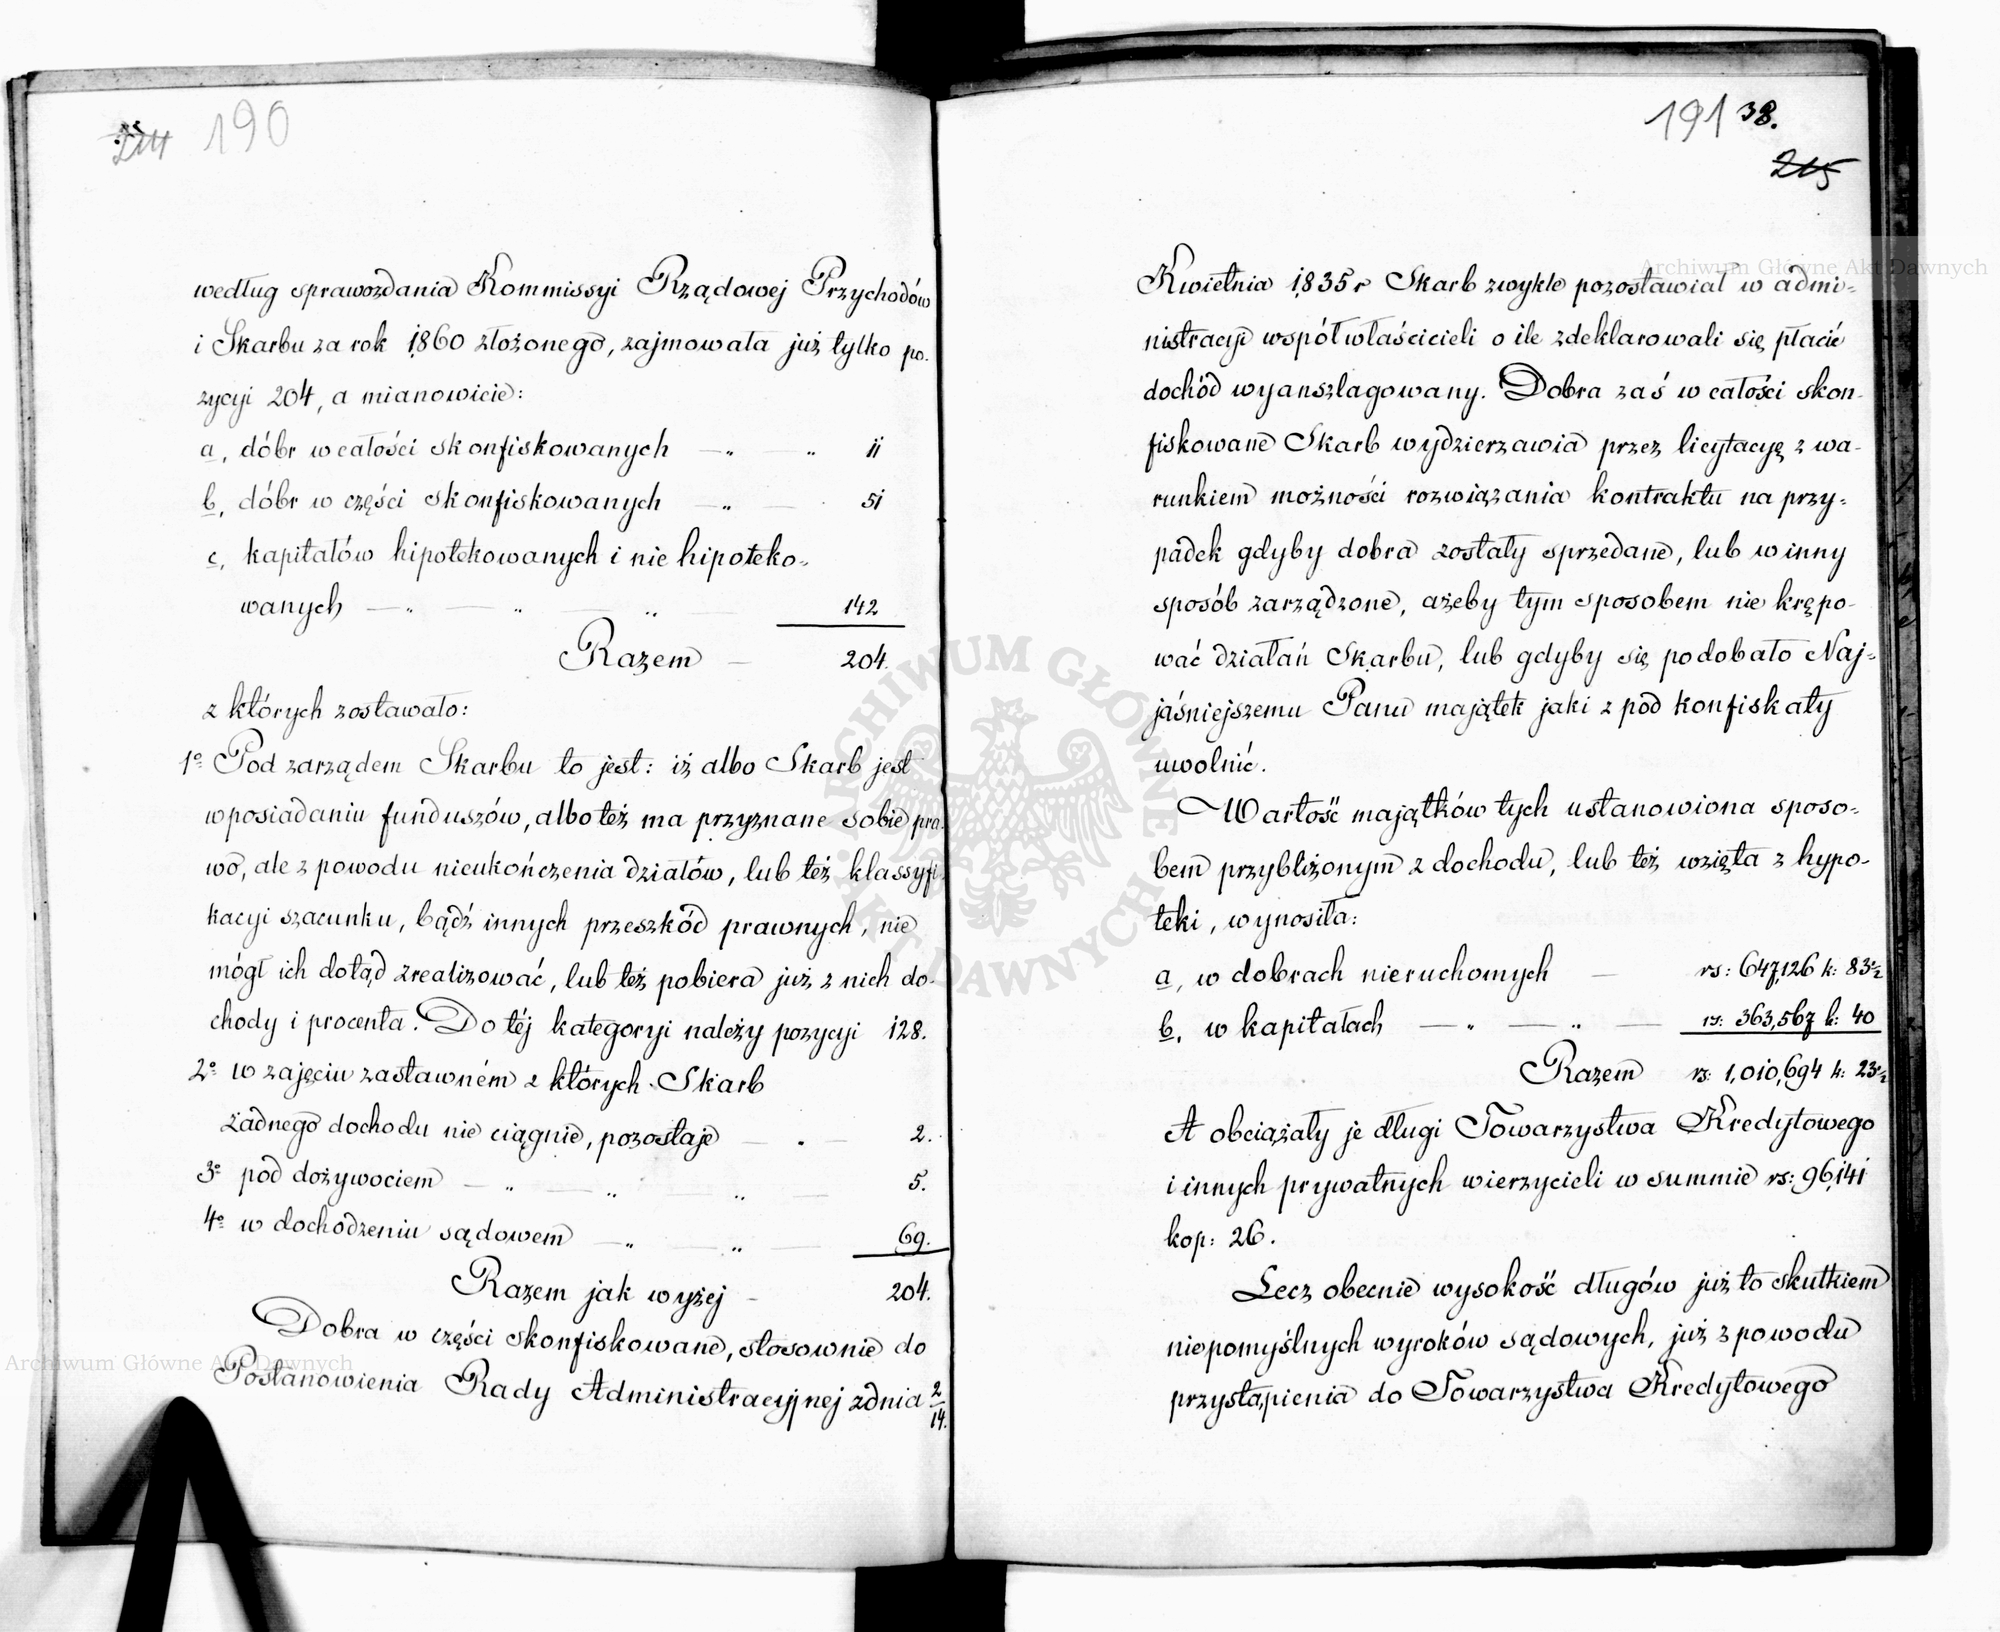 190
według sprawozdania Kommissyi Rządowej Przychodów
i Skarbu za rok 1860 złożonego, zajmowała już tylko po-
zycyi 204, a mianowicie:
a, dóbr w całości skonfiskowanych — „ — „ 11
b, dóbr w części skonfiskowanych — „ — 51
c, kapitałów hipotekowanych i nie hipoteko-
wanych — „ — „ — „ — 142
Razem — 204.
z których zostawało:
1º Pod zarządem Skarbu to jest: iż albo Skarb jest
w posiadaniu funduszów, albo też ma przyznane sobie pra-
wo, ale z powodu nieukończenia działów, lub też klassyfi-
kacyi szacunku, bądź innych przeszkód prawnych, nie
mógł ich dotąd zrealizować, lub też pobiera już z nich do-
chody i procenta. Do téj kategoryi należy pozycyi 128.
2º w zajęciu zastawném z których Skarb
żadnego dochodu nie ciągnie, pozostaje — . — 2.
3º pod dożywociem — „ — „ — „ — 5.
4º w dochodzeniu sądowem — „ — „ — 69.
Razem jak wyżej — 204.
Dobra w części skonfiskowane, stosownie do
Postanowienia Rady Administracyjnej z dnia 2/14.
191 38.
215
Kwietnia 1835 r Skarb zwykle pozostawiał w admi-
nistracyi współwłaścicieli o ile zdeklarowali się płacić
dochód wyanszlagowany. Dobra zaś w całości skon-
fiskowane Skarb wydzierzawia przez licytacyę z wa-
runkiem możności rozwiązania kontraktu na przy-
padek gdyby dobra zostały sprzedane, lub w inny
sposób zarządzone, ażeby tym sposobem nie krępo-
wać działań Skarbu, lub gdyby się podobało Naj-
jaśniejszemu Panu majątek jaki z pod konfiskaty
uwolnić.
Wartość majątków tych ustanowiona sposo-
bem przybliżonym z dochodu, lub też wzięta z hypo-
teki, wynosiła:
a, w dobrach nieruchomych — rs: 647,126 k: 83½
b, w kapitałach — „ — „ — rs: 363,567 k: 40
Razem rs: 1,010,694 k: 23½
A obciążały je długi Towarzystwa Kredytowego
i innych prywatnych wierzycieli w summie rs: 96,141
kop: 26.
Lecz obecnie wysokość długów już to skutkiem
niepomyślnych wyroków sądowych, już z powodu
przystąpienia do Towarzystwa Kredytowego
Archiwum Główne Akt Dawnych
Archiwum Główne Akt Dawnych
ARCHIWUM GŁÓWNE AKT DAWNYCH